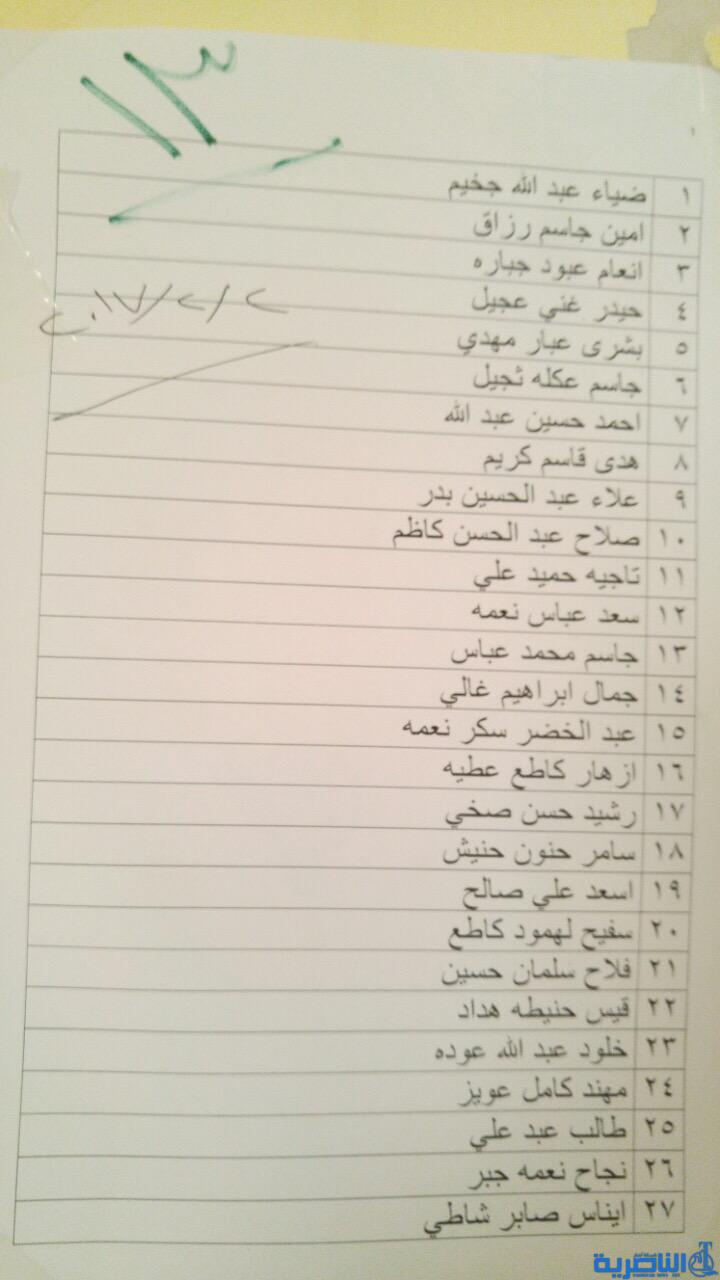 ١٣
١ ضياء عبد الله جخيم
٢ امين جاسم رزاق
٣ انعام عبود جباره
٤ حيدر غني عجيل
٢٠١٧/٢/٢
٥ بشرى عبار مهدي
٦ جاسم عكله ثجيل
٧ احمد حسين عبد الله
٨ هدى قاسم كريم
٩ علاء عبد الحسين بدر
١٠ صلاح عبد الحسن كاظم
١١ تاجيه حميد علي
١٢ سعد عباس نعمه
١٣ جاسم محمد عباس
١٤ جمال ابراهيم غالي
١٥ عبد الخضر سكر نعمه
١٦ ازهار كاطع عطيه
١٧ رشيد حسن صخي
١٨ سامر حنون حنيش
١٩ اسعد علي صالح
٢٠ سفيح لهمود كاطع
٢١ فلاح سلمان حسين
٢٢ قيس حنيطه هداد
٢٣ خلود عبد الله عوده
٢٤ مهند كامل عويز
٢٥ طالب عبد علي
٢٦ نجاح نعمه جبر
٢٧ ايناس صابر شاطي
الناصرية